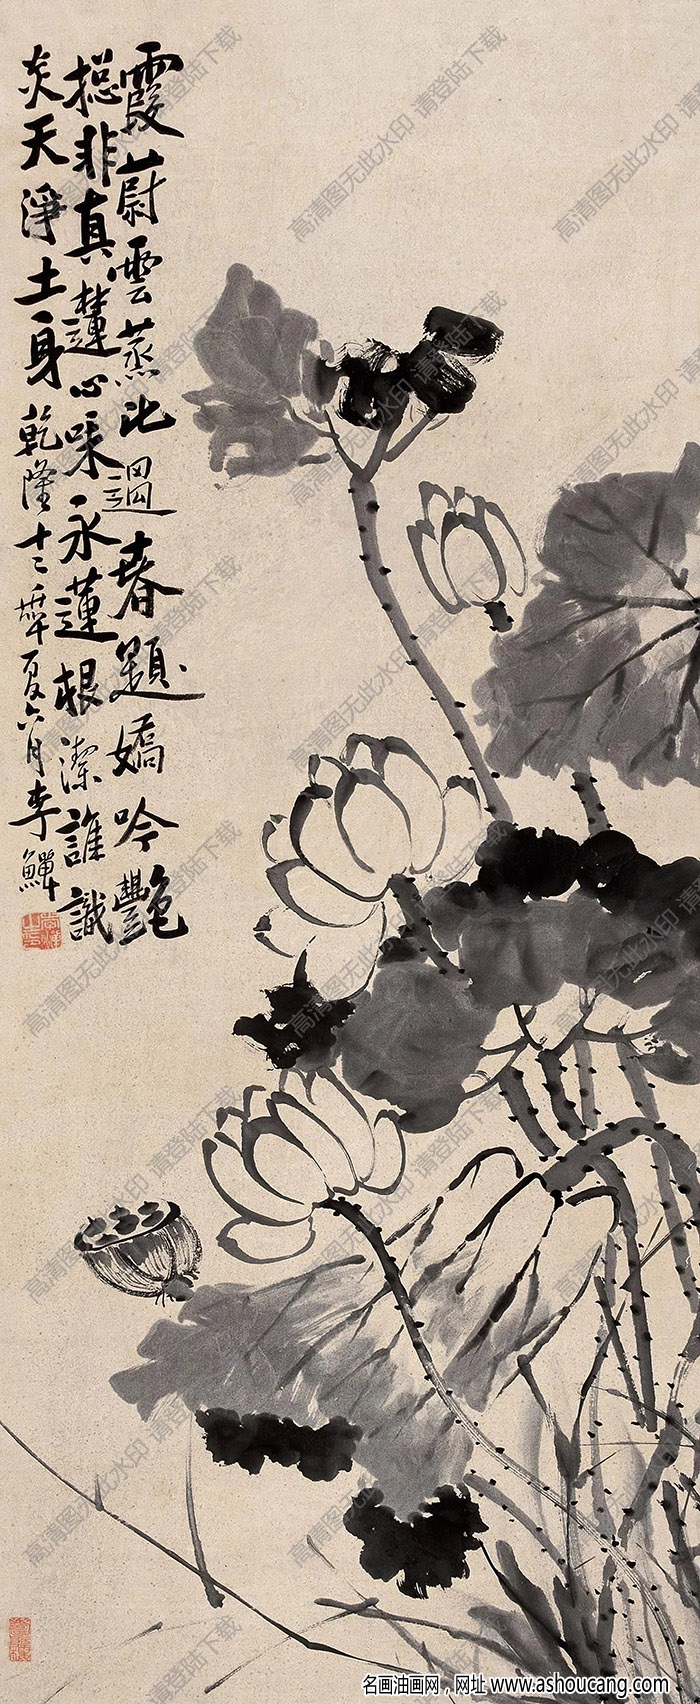 霞蔚雲蒸比過春題嬌吟艷
揔非真蓮心味永蓮根潔誰識
炎天淨土身 乾隆十二年夏六月李鱓
高清图无此水印 请登陆下载
名画油画网，网址 www.ashoucang.com